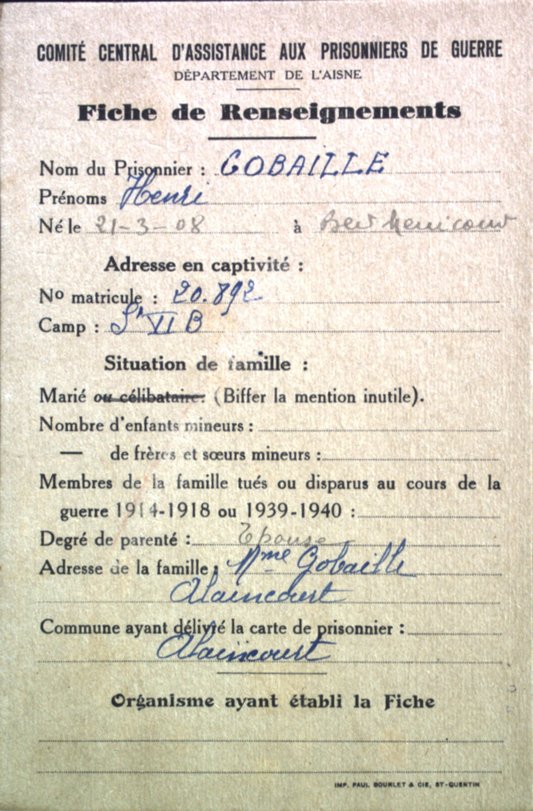 COMITÉ CENTRAL D'ASSISTANCE AUX PRISONNIERS DE GUERRE
DÉPARTEMENT DE L'AISNE
Fiche de Renseignements
Nom du Prisonnier : GOBAILLE
Prénoms Henri
Né le 21-3-08 à
Adresse en captivité :
No matricule : 20.892
Camp : VI B
Situation de famille :
Marié ou célibataire. (Biffer la mention inutile).
Nombre d'enfants mineurs :
— de frères et sœurs mineurs :
Membres de la famille tués ou disparus au cours de la
guerre 1914-1918 ou 1939-1940 :
Degré de parenté : Epouse
Adresse de la famille : Mme Gobaille
Alaincourt
Commune ayant délivré la carte de prisonnier :
Alaincourt
Organisme ayant établi la Fiche
IMP. PAUL BOURLET & CIE, ST-QUENTIN